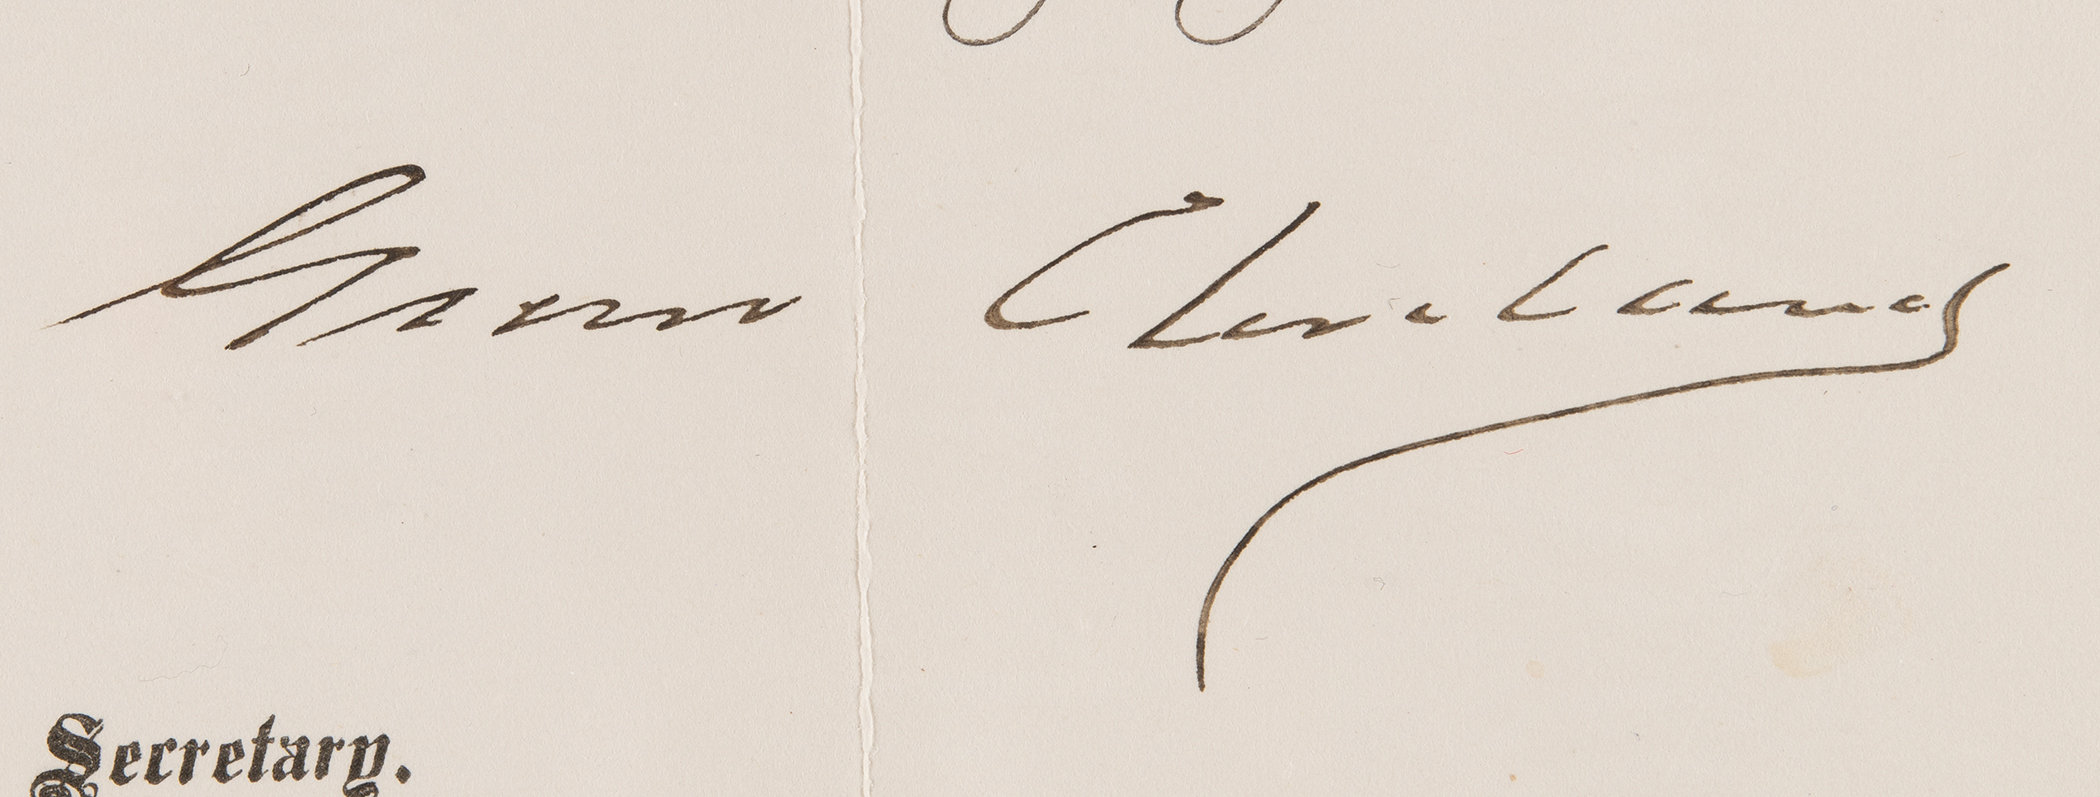 Grover Cleveland
Secretary.